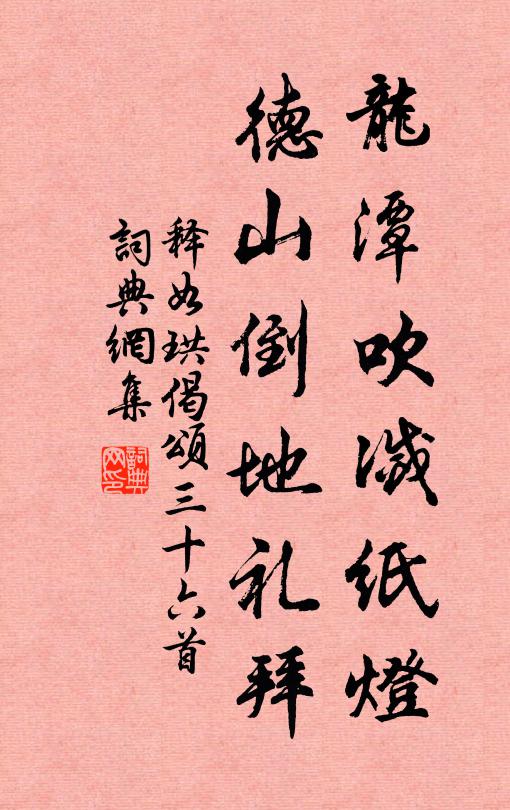 龍潭吹滅紙燈
德山倒地礼拜
释如珙偈頌三十六首
詞典網集
詞典网印